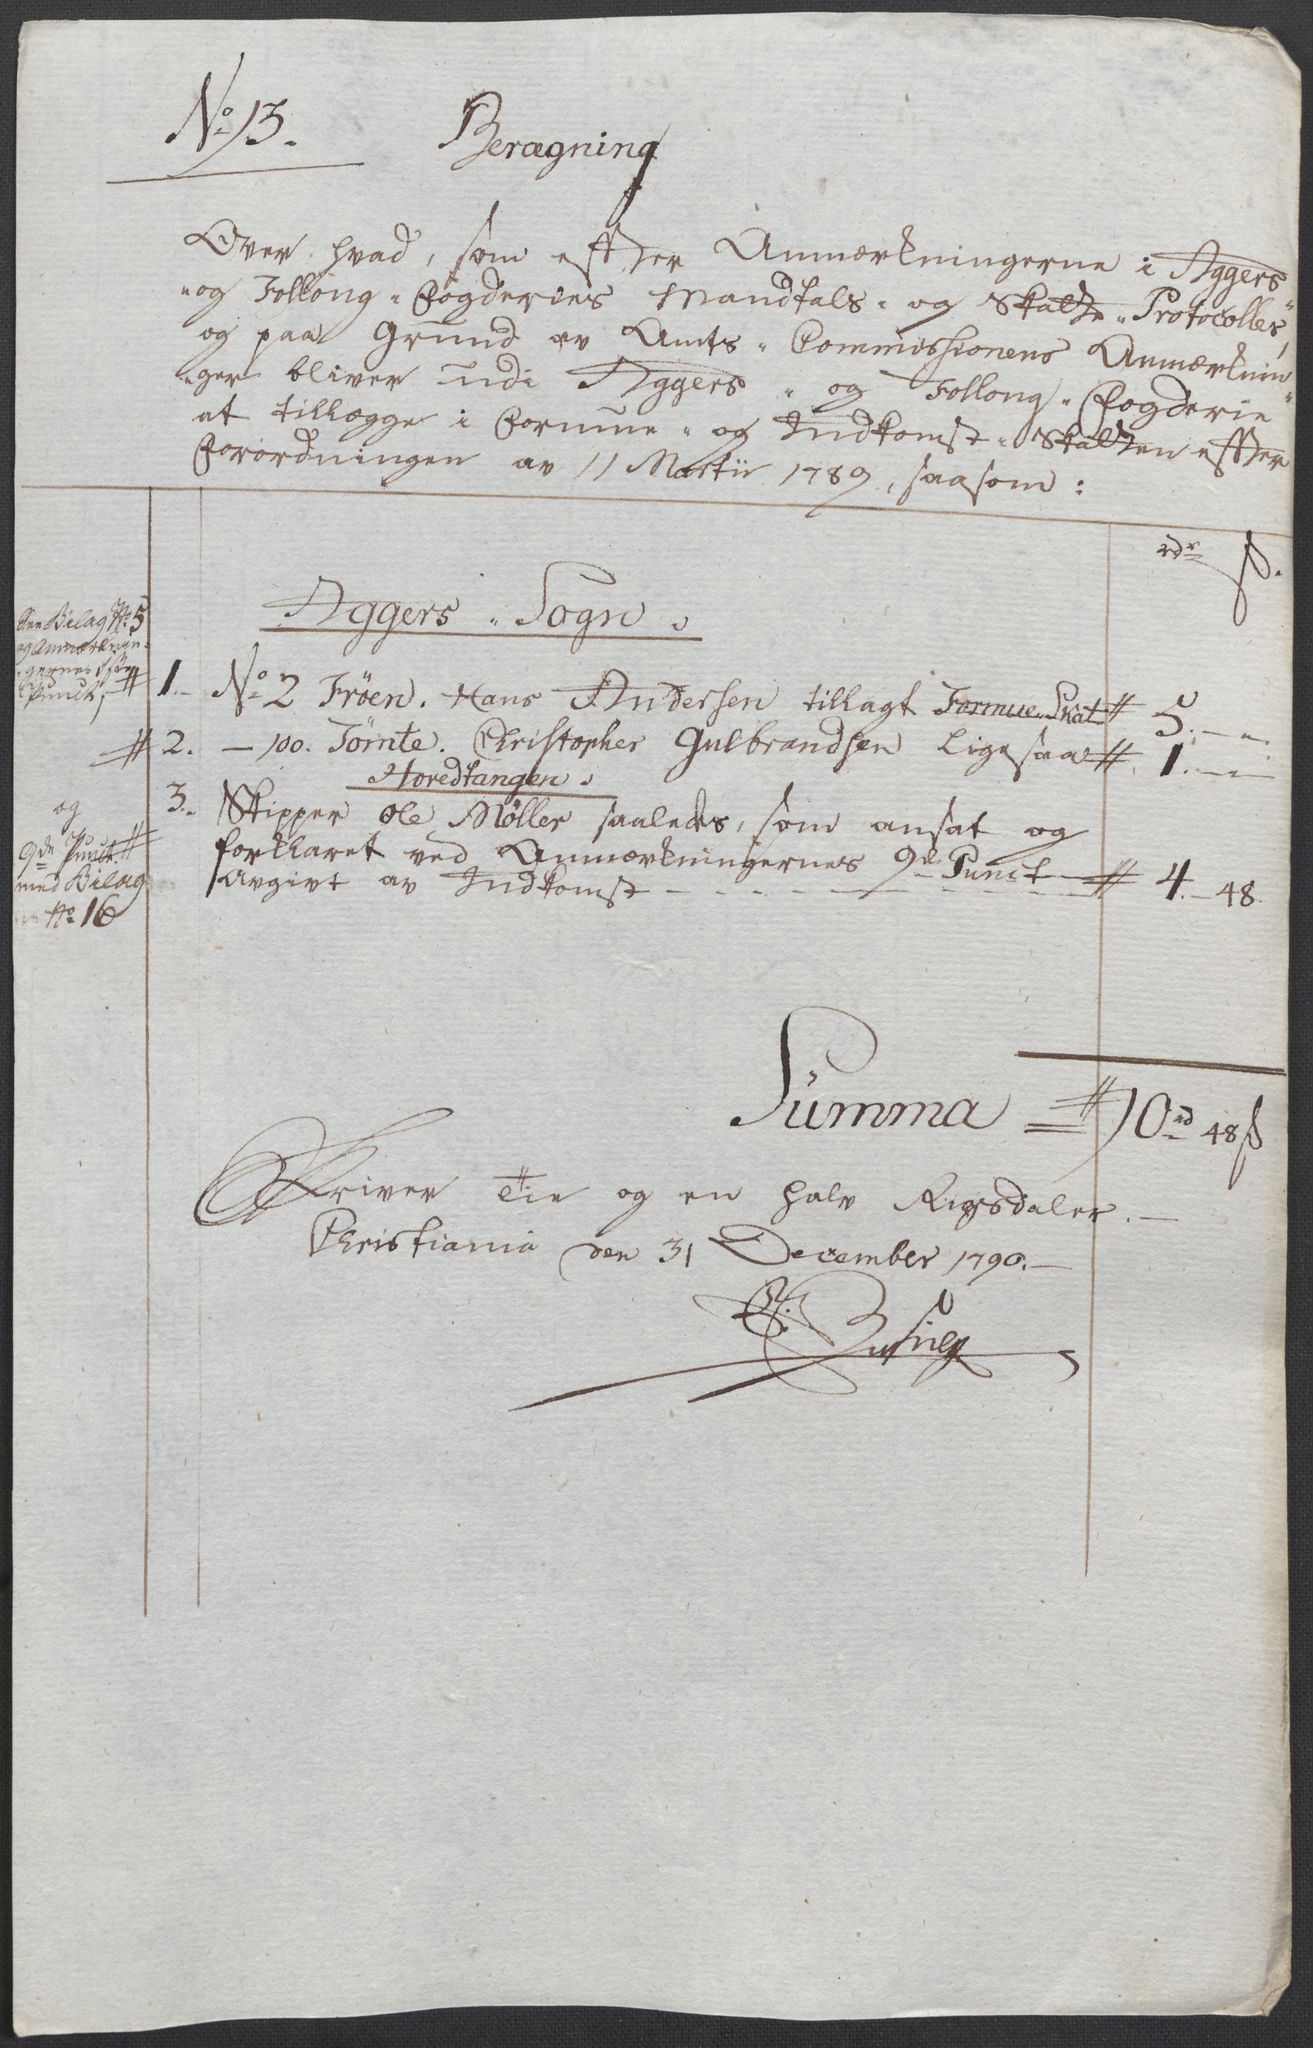 No 13.
Beregning
Over hvad, som efter Anmærkningerne i Aggers
og Follong Fogderies Mandtals og Skatte Protocoller,
og paa Grund av Amts Commissionens Anmærknin
ger bliver udi Aggers og Follong Fogderie
at tillægge i Formue og Indkomst Skatten efter
Forordningen av 11 Martii 1789, saasom:
rdr ß.
Aggers Sogn.
See Bilag No 5
og Anmærknin-
gernes
Punct,
1. No 2 Fröen. Hans Andersen tillagt Formue Skat # 5. - -
# 2. - 100. Tömte. Christopher Gulbrandsen Ligesaa # 1. - -
Hovedtangen.
3. Skipper Ole Møller saaledes, som ansat og
og
forklaret ved Anmærkningernes 9de Punct
9de Punct #
med Bilag
avgivt av Indkomst # 4. - 48.
No 16
Summa # 10 rd 48 ß
Skriver Tie og en halv Rigsdaler.
Christiania den 31 December 1790.